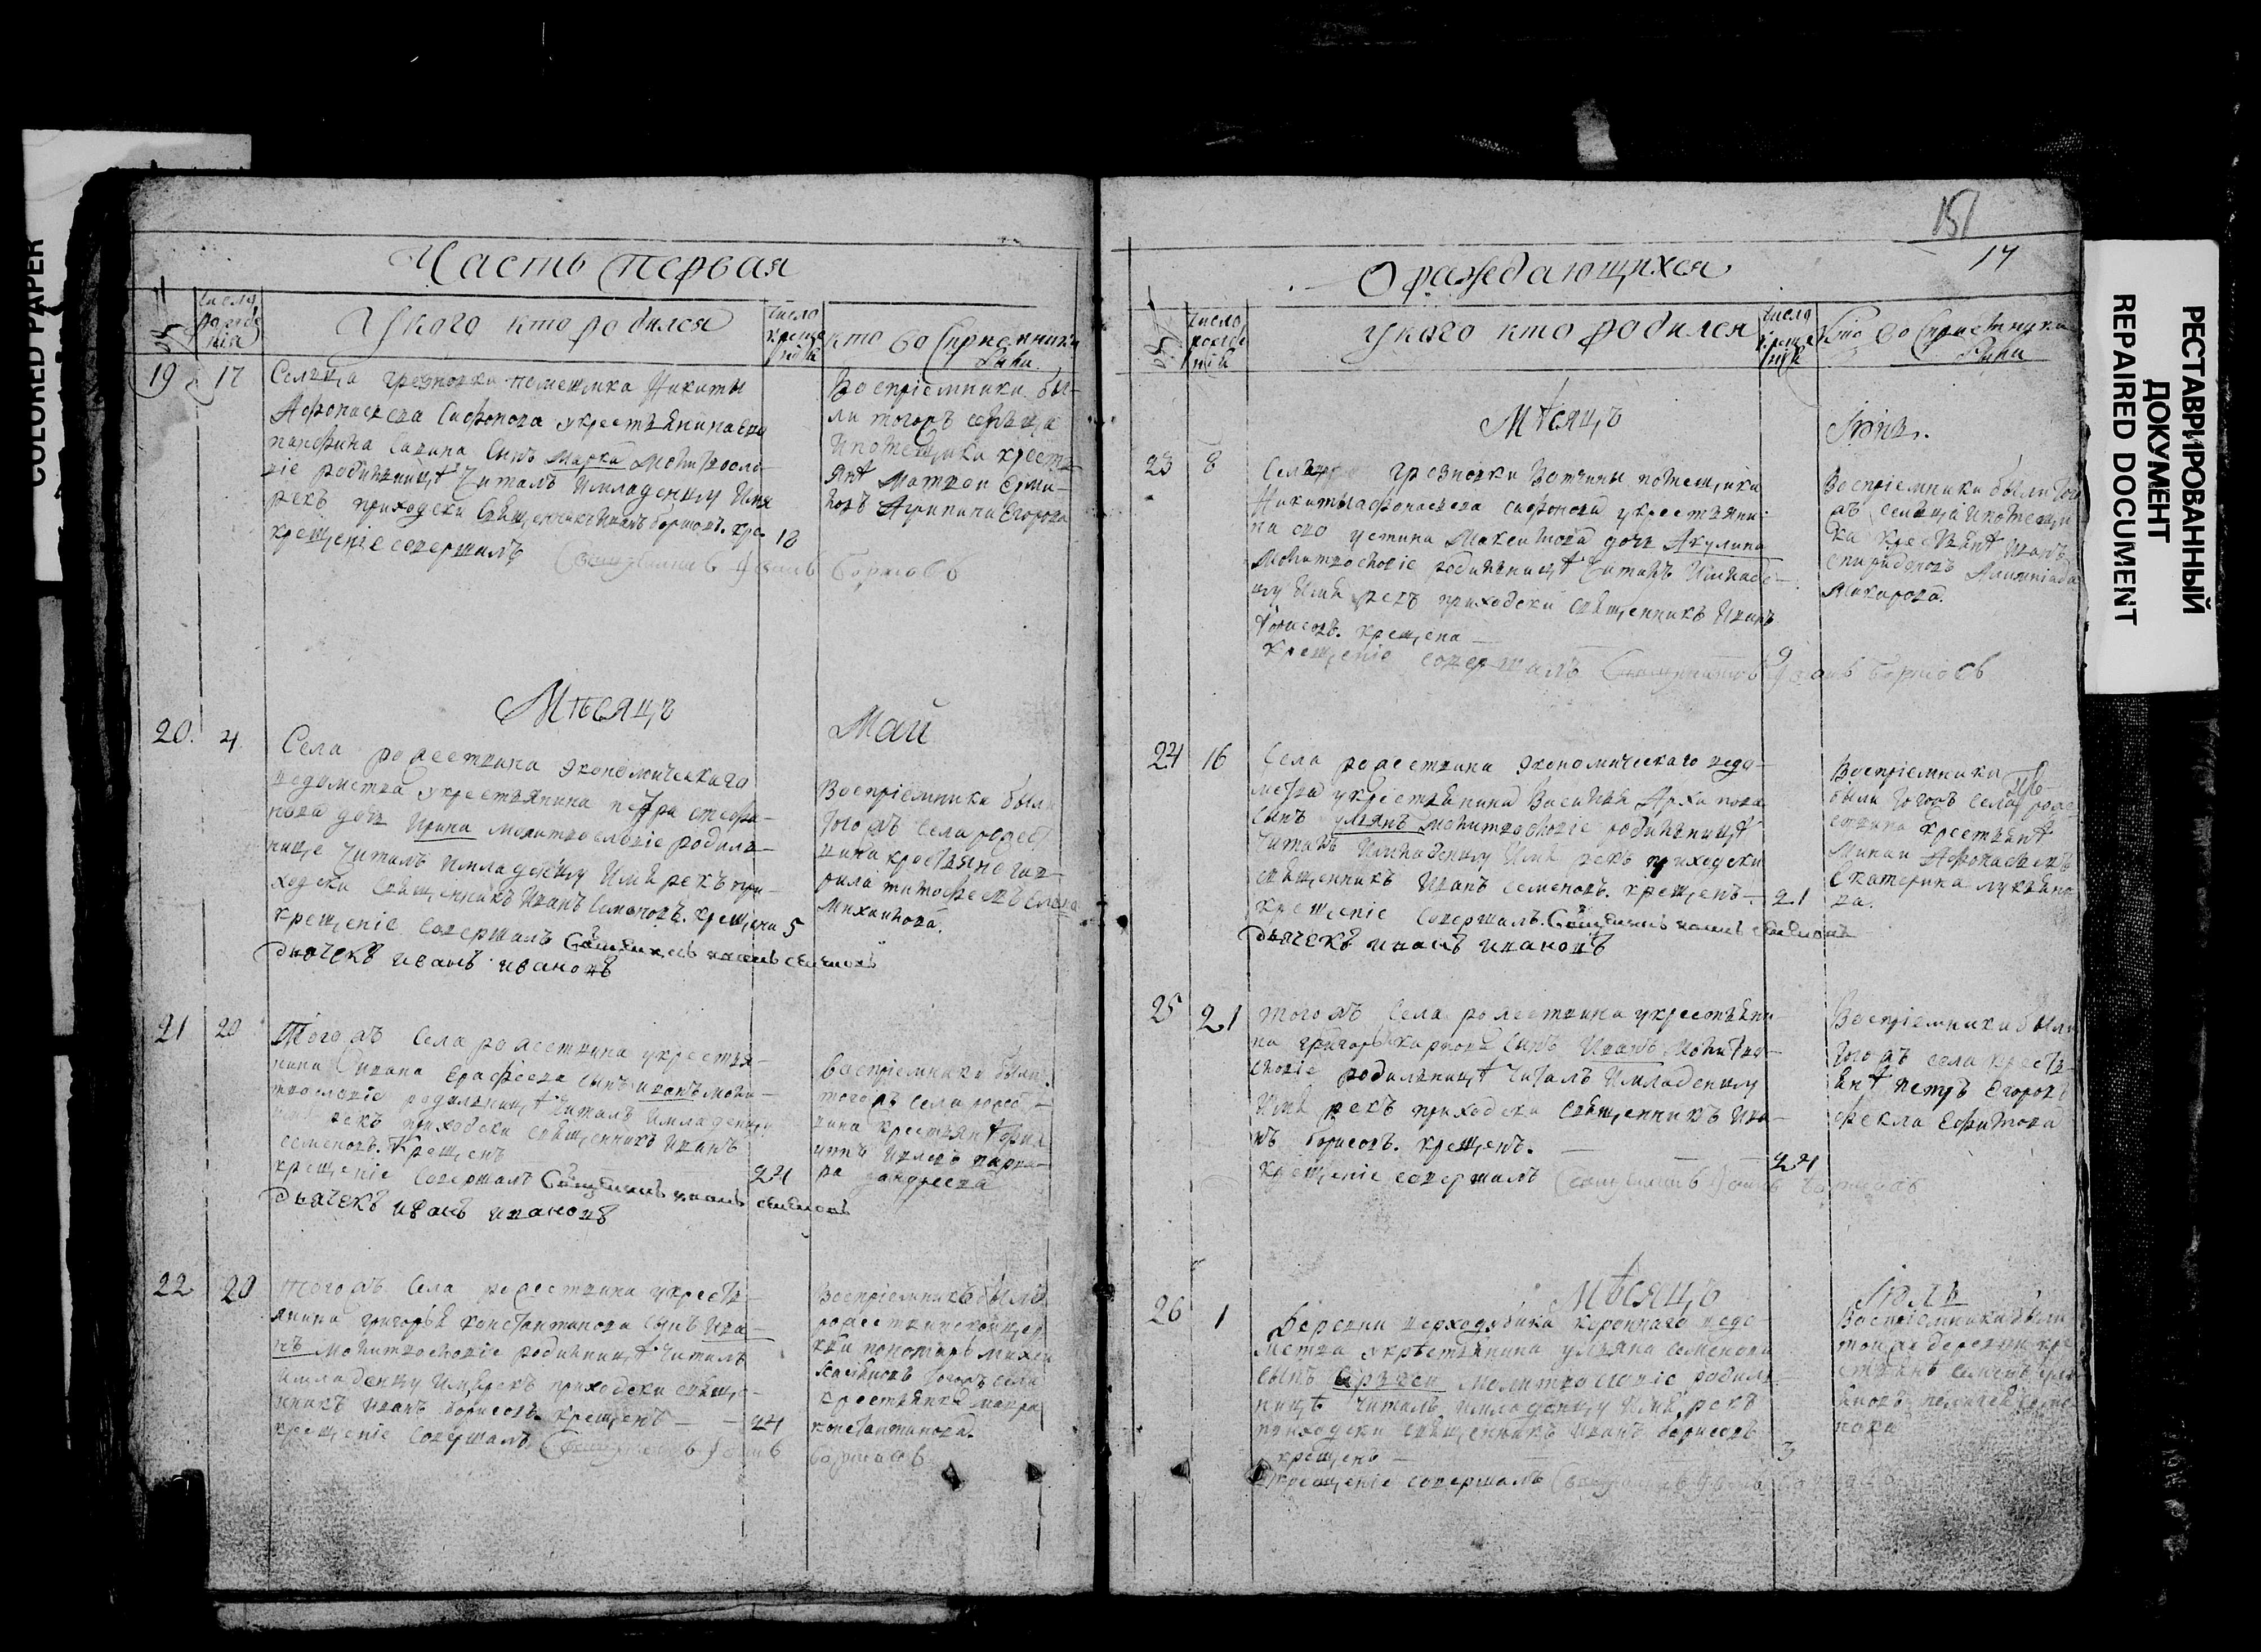 COLORED PAPER
Часть первая
числа рожде нія
У кого кто родился
число креще нія
кто воспріемники были
19 17
Селца помещика Никиты
Афонасьева Сафонова у крестьянина его
сынъ Марка молитвосло-
віе родильницѣ читалъ и младенцу имя
рекъ приходски свящ,енникъ Иванъ борисовъ. кре 18
крещеніе совершалъ Священникъ Іоаннъ Борисовъ
Воспріемники бы-
ли тогожъ селца
и помещика кресть
янѣ Матвеи
Агрипина Егорова
Мѣсяцъ Май
20. 4
Села рожествина экономическаго
ведомства у крестьянина петра стефа-
нова дочь Ирина молитвословіе родиль-
нице читалъ и младенцу имя рекъ при-
ходски свящ,енникъ Иванъ Семеновъ. крещена 5
крещеніе совершалъ Священникъ иоаннъ семионовъ
дьячекъ иванъ ивановъ
Воспріемники были
тогожъ села рожест
вина крестьяне гав-
рила тимофеевъ елена
михаилова.
21 20
Того жъ села рожествина у крестья-
нина Ивана Ерофеева сынъ иванъ моли-
твословіе родильницѣ читалъ и младенцу
рекъ приходски свящ,енникъ Иванъ
семеновъ. Крещенъ
крещеніе совершалъ Священникъ иоаннъ семионовъ 24
дьячекъ иванъ ивановъ
Воспріемники были
тогожъ села рожест-
вина крестьянѣ
варва-
ра андреева
22 20
того жъ села рожествина у кресть-
янина григорья константинова сынъ Ива-
нъ молитвословіе родильницѣ читалъ
и младенцу имя рекъ приходски свяще-
нникъ Иванъ борисовъ. крещенъ 24
крещеніе совершалъ Священникъ Іоаннъ Борисовъ
Воспріемники были
рожествинской цер
кви пономарь
тогожъ села
крестьянка мавра
константинова.
151
17
О раждающихся
число рожде нія
у кого кто родился
число креще нія
кто воспріемники были
Мѣсяцъ Іюнь.
23 8
вотчины помещика
Никиты афонасьева сафонова у крестьяни
на его устина Максимова дочь Акулина
молитвословіе родильницѣ читалъ и младе-
нцу имя рекъ приходски священникъ Иванъ
борисовъ. крещена 9
крещеніе совершалъ Священникъ Іоаннъ Борисовъ
Воспріемники были того
жъ селца и помещи
ка крестьянѣ Иванъ
спиридоновъ
Макарова.
24 16
Села рожествина экономическаго ведо-
мства у крестьянина Василья Архипова
сынъ ульянъ молитвословіе родильницѣ
читалъ и младенцу имя рекъ приходски
священникъ Иванъ семеновъ. крещенъ 21
крещеніе совершалъ. Священникъ иоаннъ семионовъ
дьячекъ иванъ ивановъ
Воспріемники
были тогожъ села роже
ствина крестьянѣ
Минаи Афонасьевъ
Екатерина лукьяно
ва.
25 21
того жъ села рожествина у крестьяни
на григорья карпова сынъ Иванъ молитво-
словіе родильницѣ читалъ и младенцу
имя рекъ приходски священникъ Ива-
нъ борисовъ. крещенъ. 24
крещеніе совершалъ Священникъ Іоаннъ Борисовъ
Воспріемники были
того жъ села кресть-
янѣ петръ Егоровъ
фекла Ефимова
Мѣсяцъ Іюль
26 1
Деревни короннаго ведо-
мства у крестьянина ульяна семенова
сынъ Сергеи молитвословіе родиль-
ницѣ читалъ и младенцу имя рекъ
приходски священникъ Иванъ борисовъ
крещенъ 3
крещеніе совершалъ Священникъ
Воспріемники были
тои жъ деревни кре
стьянѣ семенъ
РЕСТАВРИРОВАННЫЙ
ДОКУМЕНТ
REPAIRED DOCUMENT